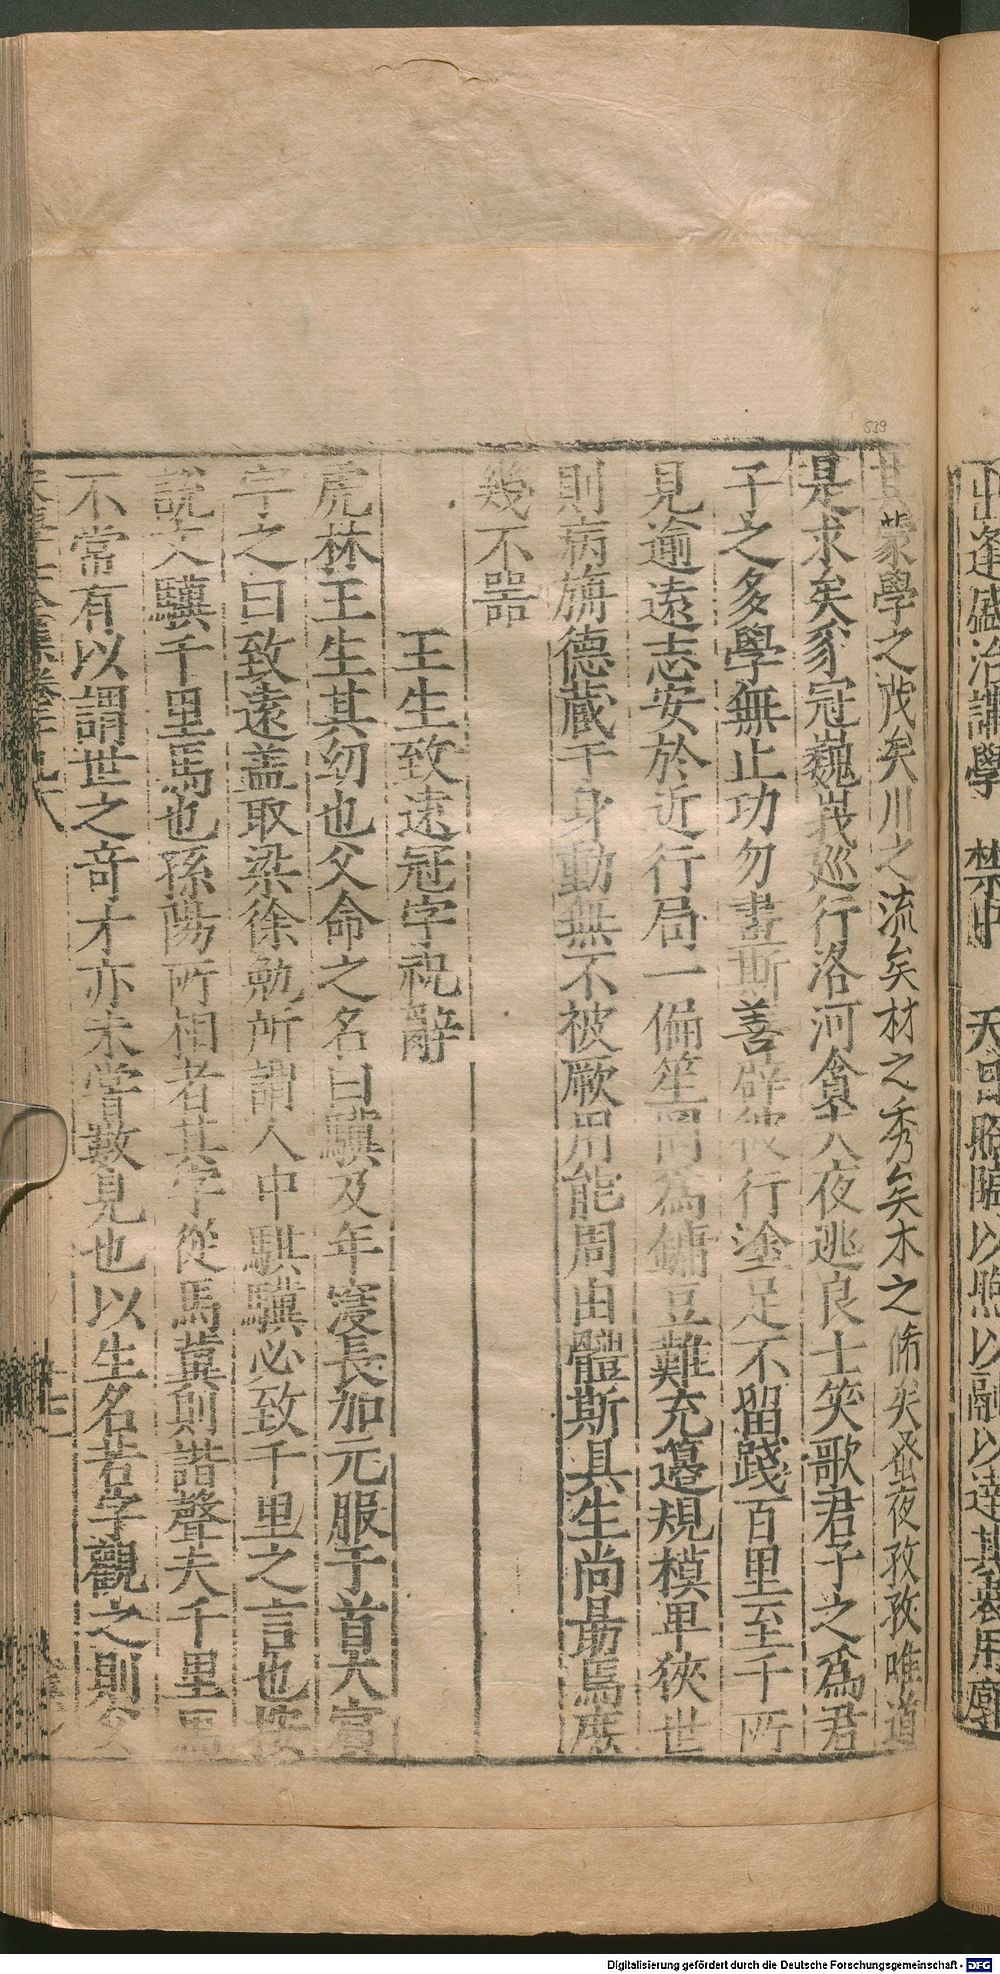 出逢盛治講學 禁中 天 以照以融以達其器用
蒙學之茂矣川之流矣材之秀矣木之脩矣蚤夜孜孜唯道
是求矣豸冠巍峩巡行洛河貪夫夜逃良士笑歌君子之爲君
子之多學無止功勿畫斯善辟彼行塗足不留踐百里至千所
見逾遠志安於近行局一偏笙罔為鏞豆難充籩規模卑狹世
則病旃德藏于身動無不被厥用能周由體斯具生尚勗焉庶
幾不器
王生致遠冠字祝辭
虎林王生其幼也父命之名曰驥及年寖長加元服于首大賓
字之曰致遠蓋取梁徐勉所謂人中騏驥必致千里之言也按
說文驥千里馬也孫陽所相者其字從馬冀則諧聲夫千里馬
不常有以謂世之竒才亦未嘗數見也以生名若字觀之則父
十七
539
Digitalisierung gefördert durch die Deutsche Forschungsgemeinschaft - DFG